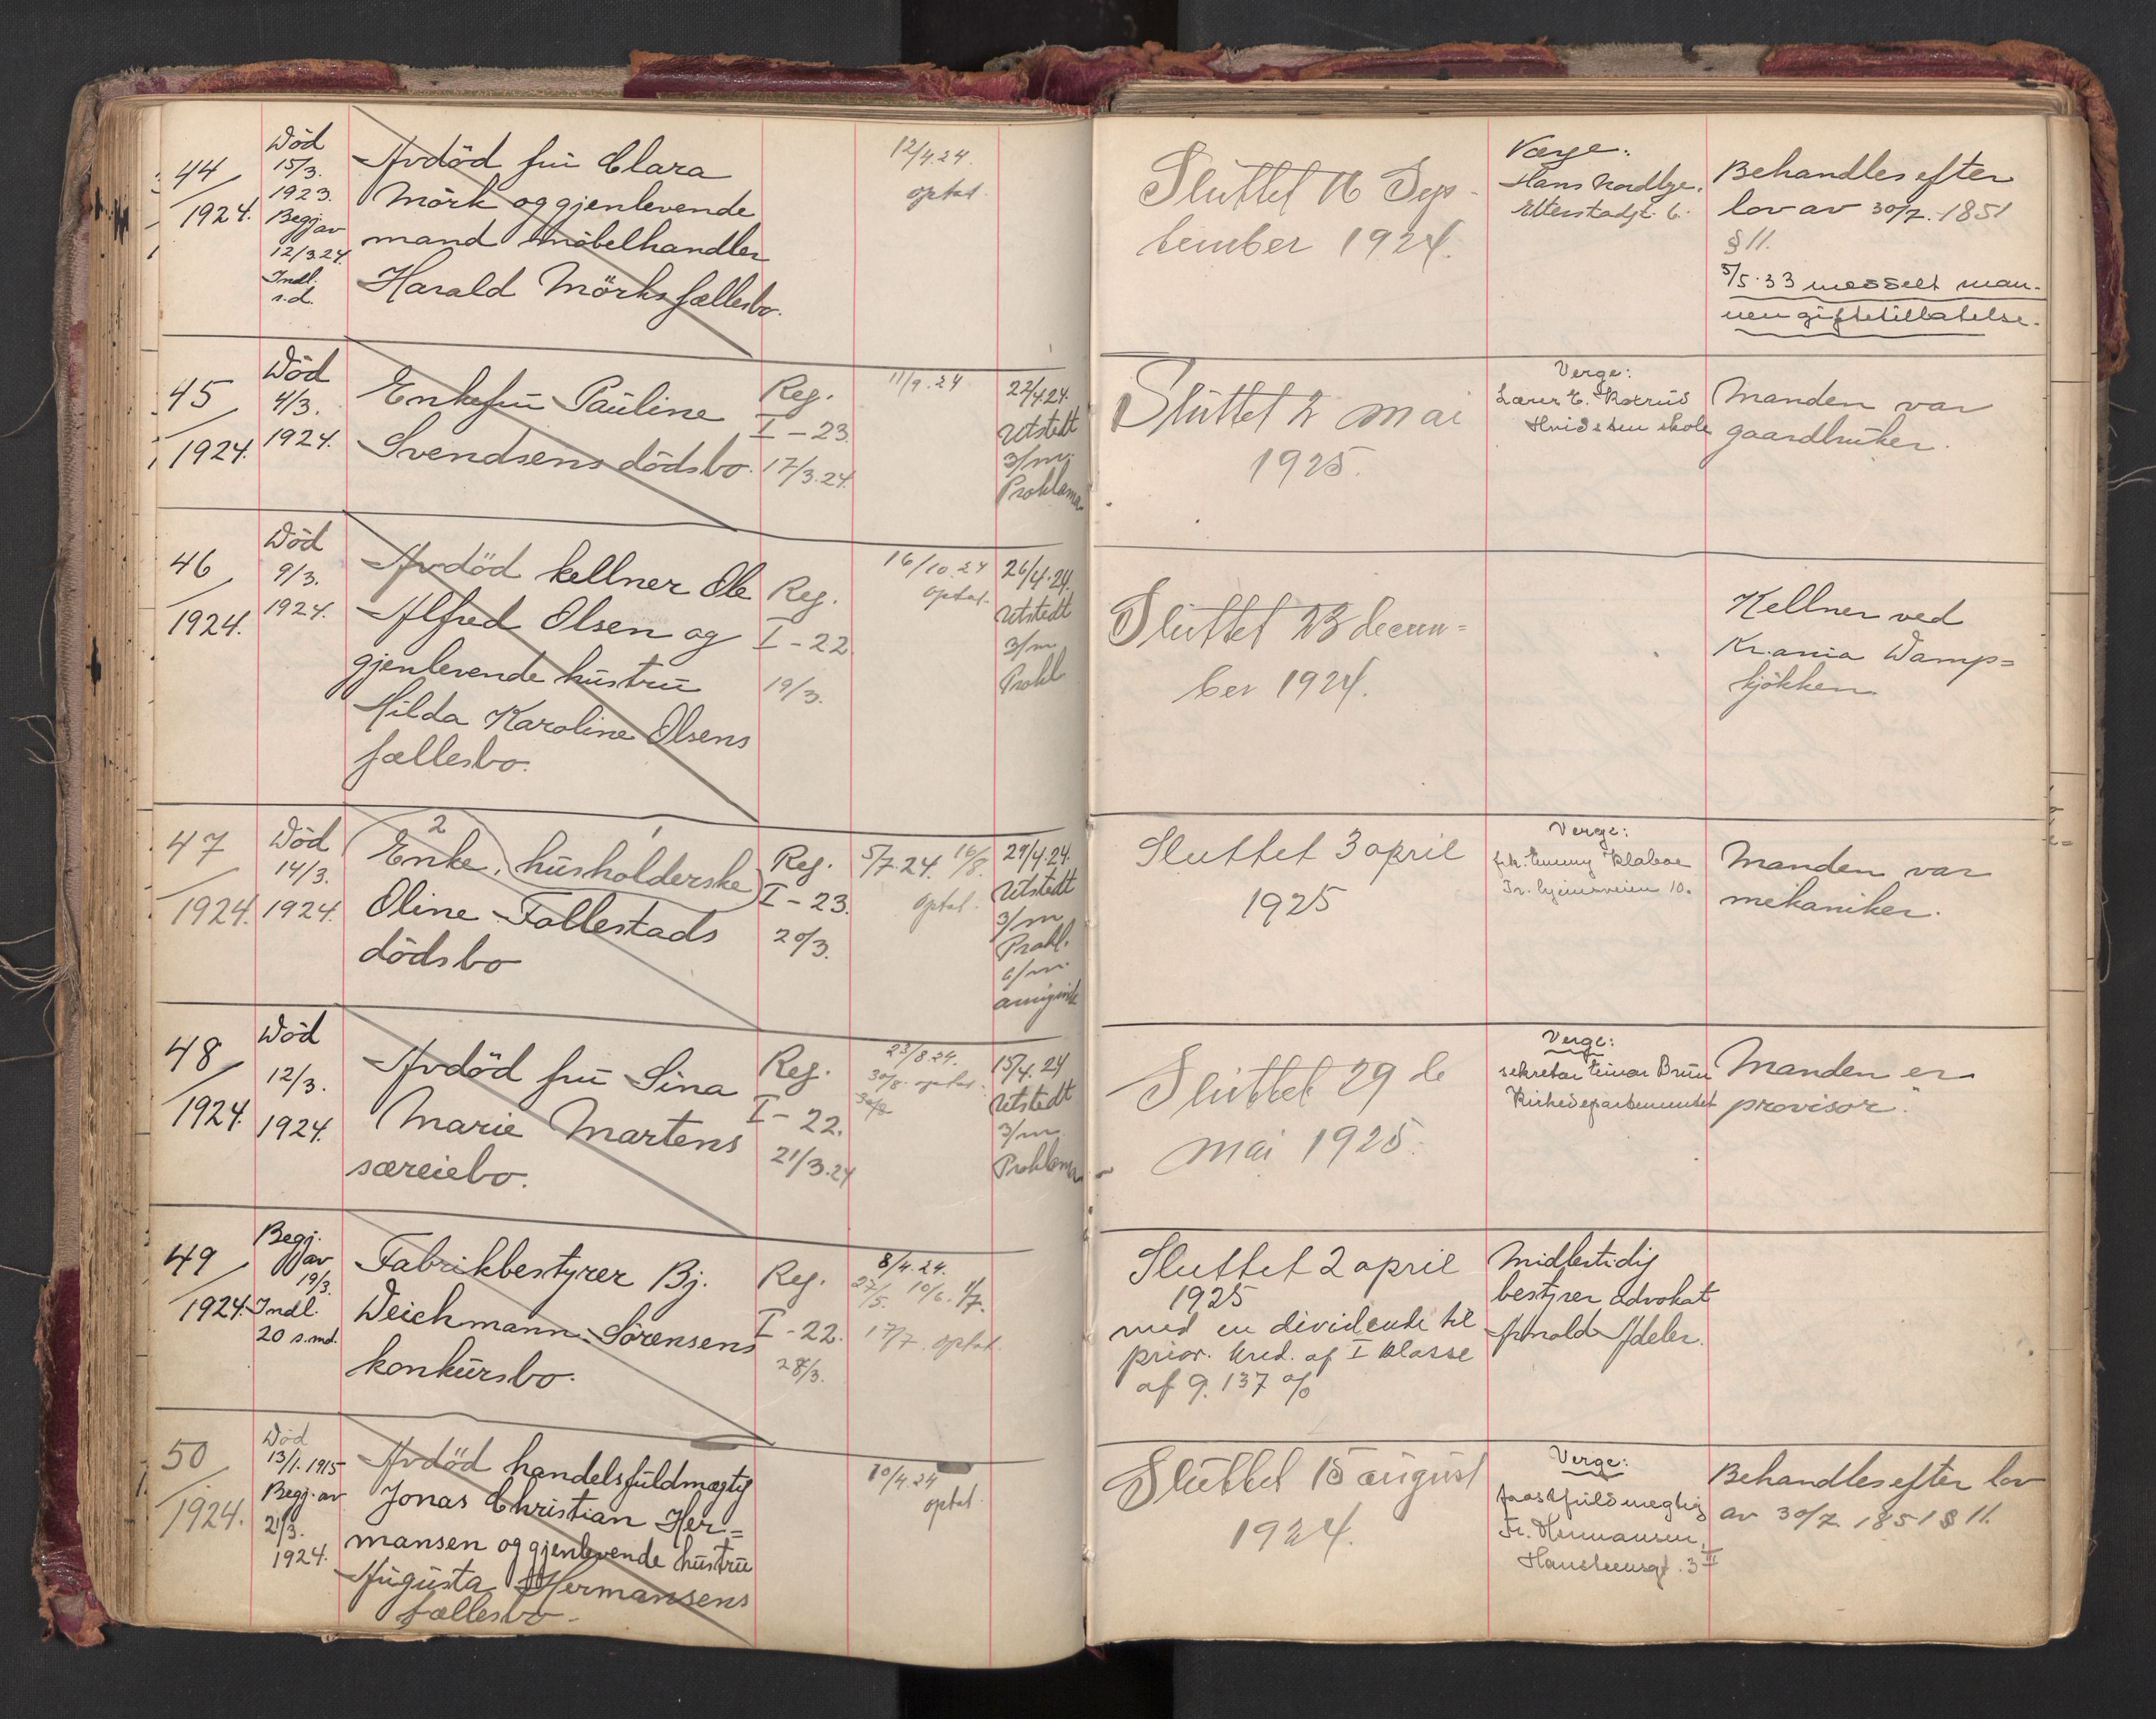 44
1924.
Död
15/3.
1923.
Begj. av
12/3.24.
Indl.
s.d.
Avdöd frü Clara
Mörk og gjenlevende
mand möbelhandler
Harald Mörks fællesbo.
12/4.24.
optat.
Slüttet 16 Sep-
tember 1924.
Værge:
Hans Nordbye,
Etterstadgt. 6.
Behandles efter
lov av 30/7. 1851
§ 11.
5/5.33 meddelt man-
nen giftetillatelse.
45
1924.
Död
4/3.
1924.
Enkefrü Paüline
Svendsens dödsbo.
Reg.
I - 23.
17/3.24.
11/9.24
22/4.24.
Utstedt
3/m.
Proklama
Slüttet 2 mai
1925.
Verge:
Lærer E.
Hvidsten skole
Manden var
gaardbrüker.
46
1924.
Död
9/3.
1924.
Avdöd kellner Ole
Alfred Olsen og
gjenlevende hüstrü
Hilda Karoline Olsens
fællesbo.
Reg.
I - 22.
19/3.
16/10.24
optat.
26/4.24.
Utstedt
3/m
Prokl
Slüttet 23 decem=
ber 1924.
Kellner ved
Kr.ania Damp=
kjökken
47
1924.
Död
14/3.
1924.
2 1
Enke, hüsholderske
Oline Follestads
dödsbo
Reg.
I - 23.
20/3.
5/7.24. 16/8.
optat.
29/4.24.
Utstedt
3/m
Prokl.
6/m
Sluttet 3 april
1925
Verge:
frk. Emmy Klaboe
10.
Manden var
mekaniker.
48
1924.
Död
12/3.
1924.
Avdöd frü Sina
Marie Martens
særeiebo.
Reg.
I - 22.
21/3.24
23/8.24.
30/8. optat.
15/4.24
Utstedt
3/m.
Proklama
Slüttet 29 de
mai 1925.
Verge:
sekretær Einar Brün
Kirkedepartementet
Manden er
provisor.
49
1924.
Begj.
av
19/3.
Indl.
20 s.md.
Fabrikbestyrer Bj.
Weichmann Sörensens
konkürsbo.
Reg.
I - 22.
28/3.
8/4.24.
27/5. 10/6. 1/7.
17/7. optat.
Sluttet 2 april
1925
med en dividende til
prior. kred. af I klasse
af 9.137 %
Midlertidig
bestyrer advokat
Arnold Adeler.
50
1924.
Död
13/1.1915
Begj. av
21/3.
1924.
Avdöd handelsfüldmægtig
Jonas Christian Her=
mansen og gjenlevende hüstrü
Aügüsta Hermansens
fællesbo.
10/4.24
optat.
Slüttet 15 aügüst
1924.
Verge:
Fr. Hermansen,
Hansteensgt. 3 II
Behandles efter lov
av 30/7 1851 § 11.